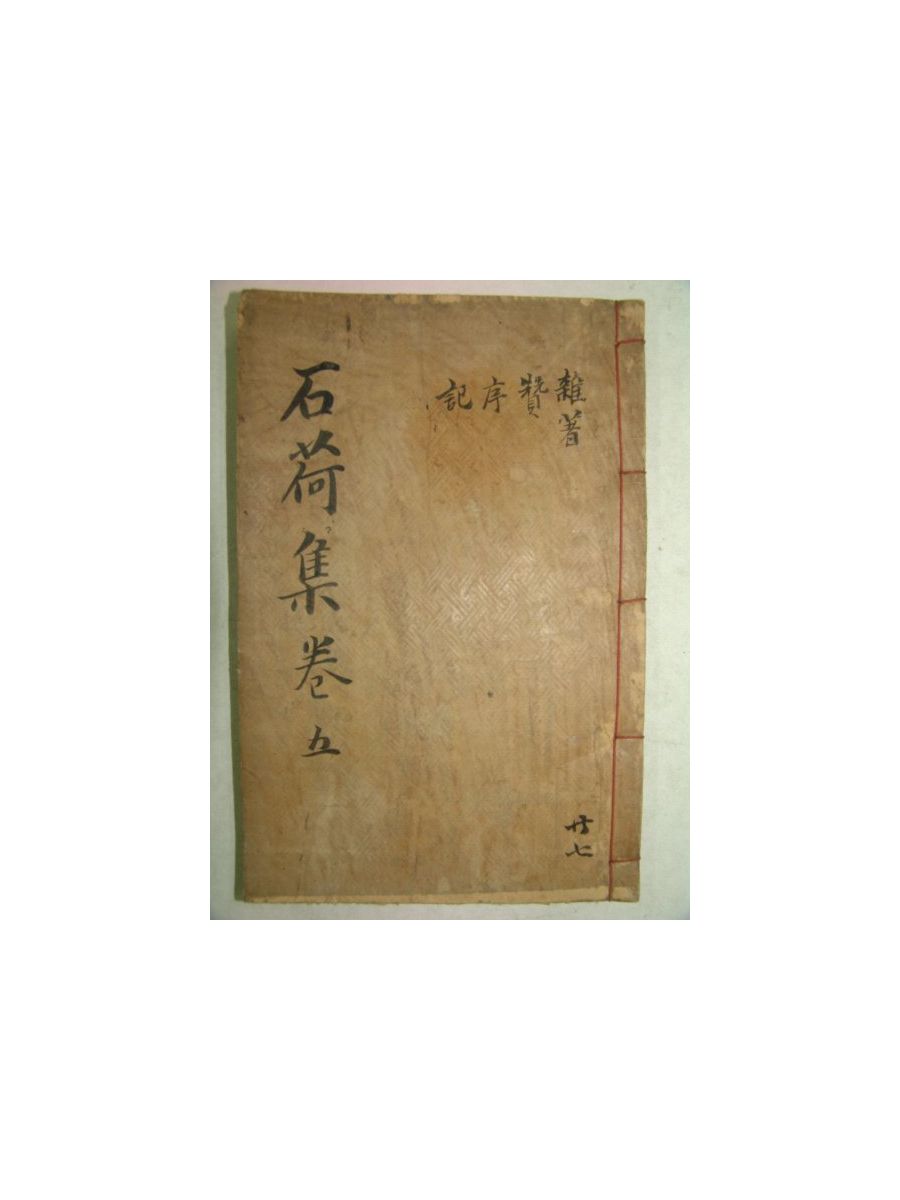 雜著
贊
序
記
石荷集卷五
廿七